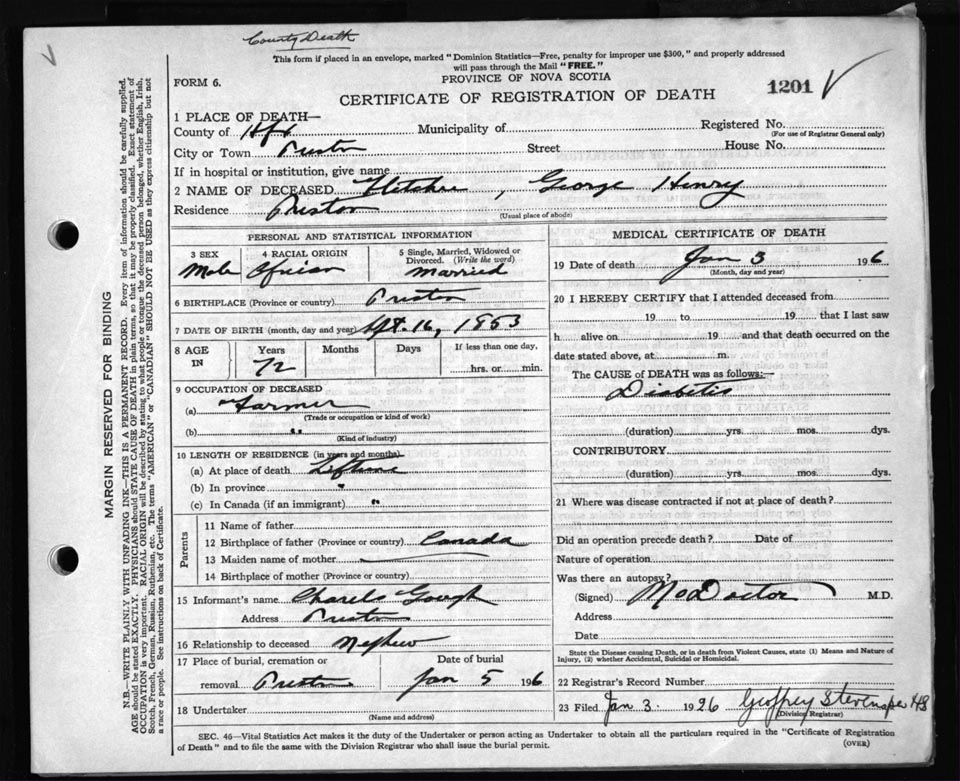 County Death
This form if placed in an envelope, marked "Dominion Statistics—Free, penalty for improper use $300," and properly addressed
will pass through the Mail "FREE."
FORM 6.
PROVINCE OF NOVA SCOTIA
1201
CERTIFICATE OF REGISTRATION OF DEATH
1 PLACE OF DEATH—
County of Hfx Municipality of Registered No.
(For use of Registrar General only)
City or Town Preston Street House No.
If in hospital or institution, give name
2 NAME OF DECEASED Fletcher, George Henry
Residence Preston
(Usual place of abode)
PERSONAL AND STATISTICAL INFORMATION
3 SEX Male
4 RACIAL ORIGIN African
5 Single, Married, Widowed or
Divorced. (Write the word)
Married
6 BIRTHPLACE (Province or country) Preston
7 DATE OF BIRTH (month, day and year) Spt. 16, 1853
8 AGE IN
Years Months Days If less than one day,
72 hrs. or min.
9 OCCUPATION OF DECEASED
(a) Farmer
(Trade or occupation or kind of work)
(b) "
(Kind of industry)
10 LENGTH OF RESIDENCE (in years and months)
(a) At place of death Liftime
(b) In province "
(c) In Canada (if an immigrant) "
Parents
11 Name of father
12 Birthplace of father (Province or country) Canada
13 Maiden name of mother
14 Birthplace of mother (Province or country)
15 Informant's name Charels Gough
Address Preston
16 Relationship to deceased Nephew
17 Place of burial, cremation or Date of burial
removal Preston Jan 5 1926
18 Undertaker
(Name and address)
MEDICAL CERTIFICATE OF DEATH
19 Date of death Jan 3 1926
(Month, day and year)
20 I HEREBY CERTIFY that I attended deceased from
19 to 19 that I last saw
h alive on 19 and that death occurred on the
date stated above, at m.
The CAUSE of DEATH was as follows:—
Diabetis
(duration) yrs. mos. dys.
CONTRIBUTORY
(duration) yrs. mos. dys.
21 Where was disease contracted if not at place of death?
Did an operation precede death? Date of
Nature of operation
Was there an autopsy?
(Signed) No Doctor M.D.
Address
Date
State the disease causing Death, or in death from Violent Causes, state (1) Means and Nature of
Injury, (2) whether Accidental, Suicidal or Homicidal.
22 Registrar's Record Number
23 Filed Jan 3. 1926 Geoffrey Stevens
(Division Registrar)
SEC. 46—Vital Statistics Act makes it the duty of the Undertaker or person acting as Undertaker to obtain all the particulars required in the "Certificate of Registration
of Death" and to file the same with the Division Registrar who shall issue the burial permit. (OVER)
MARGIN RESERVED FOR BINDING
N.B.—WRITE PLAINLY WITH UNFADING INK—THIS IS A PERMANENT RECORD. Every item of information should be carefully supplied.
AGE should be stated EXACTLY. PHYSICIANS should STATE CAUSE OF DEATH in plain terms, so that it may be properly classified. Exact statement of
OCCUPATION is very important. RACIAL ORIGIN will be described by stating to what people or tongue the deceased person belonged, whether English, Irish,
Scotch, French, German, Russian, Ruthenian, etc. The terms "AMERICAN" or "CANADIAN" SHOULD NOT BE USED as they express citizenship but not
a race or people. See instructions on back of Certificate.